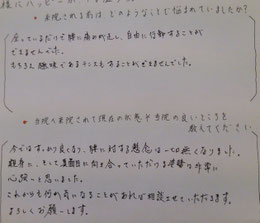 様にハッピー
・来院される前はどのようなことで悩まれていましたか?
座っているだけで腰に痛みが走し、自由に行動することが
できませんでした。
もちろん趣味であるテニスもすることができませんでした。
・当院へ来院されて現在の状態や当院の良いところを
教えてください
今ではすっかり良くなり、腰に対する懸念は一切無くなりました。
親身に、そして真面目に向き合っていただける姿勢を非常に
心強く思いました。
これからも何か気になることがあれば相談させていただきます。
よろしくお願いします。